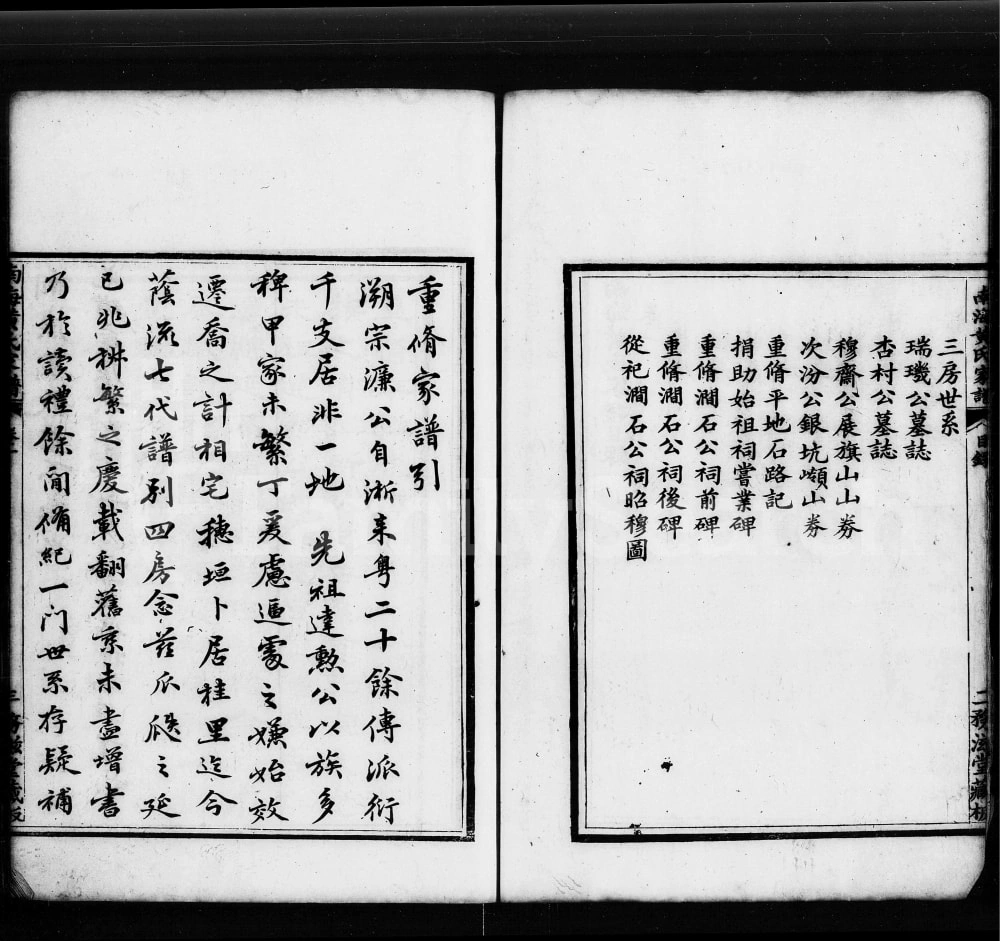 南海黃氏家譜 目錄 二 務滋堂藏板
三房世系
瑞璣公墓誌
杏村公墓誌
穆齋公展旗山山券
次汾公銀坑嶺山券
重脩平地石路記
捐助始祖祠嘗業碑
重脩澗石公祠前碑
重脩澗石公祠後碑
從祀澗石公祠昭穆圖
重脩家譜引
溯宗濂公自浙来粤二十餘傳派衍
千支居非一地 先祖達勲公以族多
稗甲家未繁丁爰慮逼處之嫌始效
遷喬之計相宅穗垣卜居桂里迄今
蔭流七代譜别四房念茲瓜瓞之延
已兆椒繁之慶載翻舊系未盡增書
乃於讀禮餘间脩紀一门世系存疑補
南海黃氏家譜 務滋堂藏板